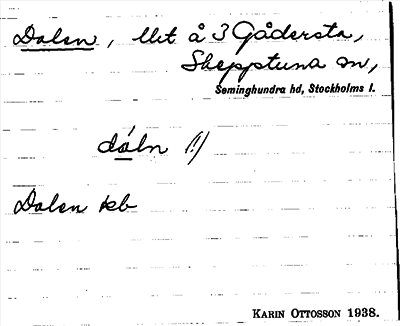 Dalen, lht å 3 Gådersta,
Skepptuna sn,
Seminghundra hd, Stockholms l.
dáln (!)
Dalen kb
KARIN OTTOSSON 1938.